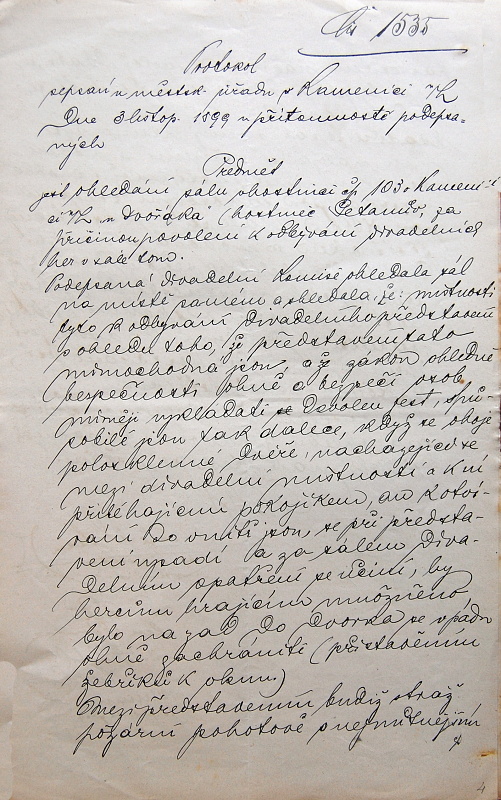 Čís 1535
Protokol
sepsaný u městsk. úřadu v Kamenici n/L
Dne 3 listop. 1899 u přítomnosti podepsa=
ných
Předmět
jest ohledání sálu v hostinci čp 103 v Kameni=
ci n/L u Dvořáků (hostinec za
příčinou povolení k odbývání divadelních
her v sále tom.
Podepsaná divadelní komise ohledala sál
na místě samém a shledala, že: místnosti
tyto k odbývání divadelního představení
s ohledu toho, že představení tato
mimochodná jsou, a že zákon ohledně
bezpečnosti ohně a bezpečí osob
mírněji vykládati se dovolen jest, spů=
sobilé jsou tak dalece, když se oboje
polosklenné dvéře, nacházející se
mezi divadelní místností a k ní
přiléhajícím pokojíkem, an k otví=
rání do vnitř jsou, se při předsta=
vení vysadí a za sálem diva=
delním opatření se učiní, by
hercům hrajícím možného
bylo na zad do dvorka se v pádu
ohně zachrániti (přistavením
žebříků k oknu.)
Mezi představením budiž stráž
požární pohotově s nejnutnějším
4